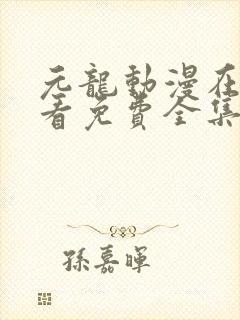 元龍動漫在
看免費全集
孫嘉暉